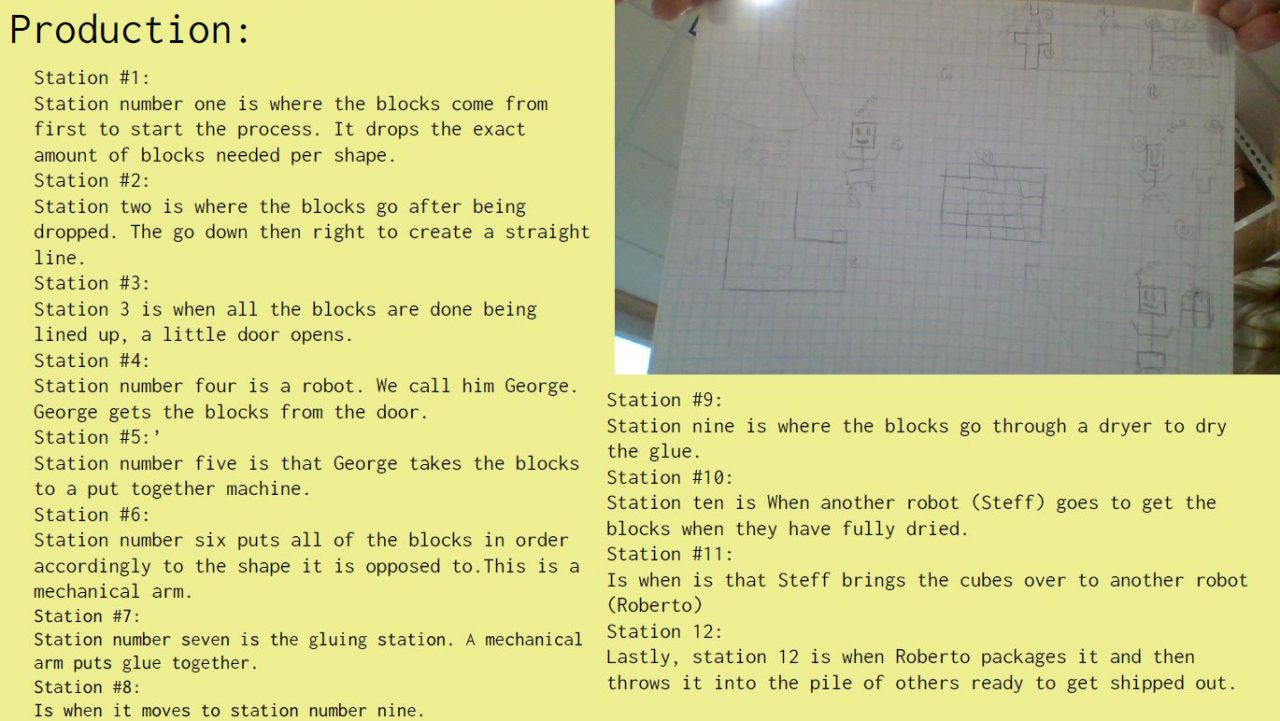 Production:
Station #1:
Station number one is where the blocks come from
first to start the process. It drops the exact
amount of blocks needed per shape.
Station #2:
Station two is where the blocks go after being
dropped. The go down then right to create a straight
line.
Station #3:
Station 3 is when all the blocks are done being
lined up, a little door opens.
Station #4:
Station number four is a robot. We call him George.
George gets the blocks from the door.
Station #5:’
Station number five is that George takes the blocks
to a put together machine.
Station #6:
Station number six puts all of the blocks in order
accordingly to the shape it is opposed to.This is a
mechanical arm.
Station #7:
Station number seven is the gluing station. A mechanical
arm puts glue together.
Station #8:
Is when it moves to station number nine.
Station #9:
Station nine is where the blocks go through a dryer to dry
the glue.
Station #10:
Station ten is When another robot (Steff) goes to get the
blocks when they have fully dried.
Station #11:
Is when is that Steff brings the cubes over to another robot
(Roberto)
Station 12:
Lastly, station 12 is when Roberto packages it and then
throws it into the pile of others ready to get shipped out.